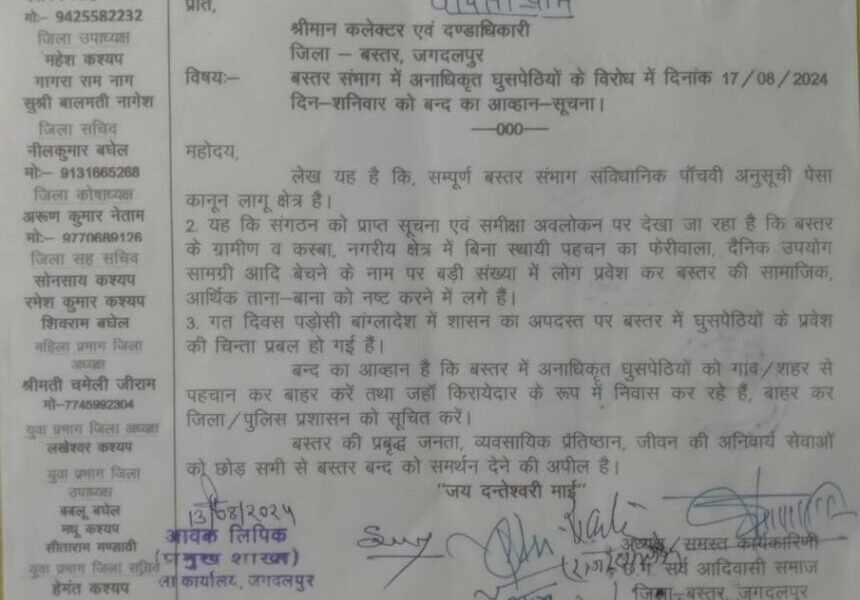 मोः– 9425582232
जिला उपाध्यक्ष
महेश कश्यप
गागरा राम नाग
सुश्री बालमती नागेश
जिला सचिव
नीलकुमार बघेल
मोः– 9131665268
जिला कोषाध्यक्ष
अरूण कुमार नेताम
मोः– 9770689126
जिला सह सचिव
सोनसाय कश्यप
रमेश कुमार कश्यप
शिवराम बघेल
महिला प्रभाग जिला
अध्यक्ष
श्रीमती चमेली जीराम
मो–7745992304
युवा प्रभाग जिला अध्यक्ष
लखेश्वर कश्यप
युवा प्रभाग जिला
उपाध्यक्ष
बबलू बघेल
मधू कश्यप
सीताराम मण्डावी
युवा प्रभाग जिला सचिव
हेमंत कश्यप
प्रति,
श्रीमान कलेक्टर एवं दण्डाधिकारी
जिला – बस्तर, जगदलपुर
विषयः– बस्तर संभाग में अनाधिकृत घुसपेठियों के विरोध में दिनांक 17/08/2024
दिन–शनिवार को बन्द का आव्हान–सूचना।
—000—
महोदय,
लेख यह है कि, सम्पूर्ण बस्तर संभाग संविधानिक पॉचवी अनुसूची पेसा
कानून लागू क्षेत्र है।
2. यह कि संगठन को प्राप्त सूचना एवं समीक्षा अवलोकन पर देखा जा रहा है कि बस्तर
के ग्रामीण व कस्बा, नगरीय क्षेत्र में बिना स्थायी पहचन का फेरीवाला, दैनिक उपयोग
सामग्री आदि बेचने के नाम पर बड़ी संख्या में लोग प्रवेश कर बस्तर की सामाजिक,
आर्थिक ताना–बाना को नष्ट करने में लगे हैं।
3. गत दिवस पड़ोसी बांग्लादेश में शासन का अपदस्त पर बस्तर में घुसपेठियों के प्रवेश
की चिन्ता प्रबल हो गई हैं।
बन्द का आव्हान है कि बस्तर में अनाधिकृत घुसपेठियों को गांव/शहर से
पहचान कर बाहर करें तथा जहॉ किरायेदार के रूप में निवास कर रहे हैं, बाहर कर
जिला/पुलिस प्रशासन को सूचित करें।
बस्तर की प्रबृद्ध जनता, व्यवसायिक प्रतिष्ठान, जीवन की अनिवार्य सेवाओं
को छोड़ सभी से बस्तर बन्द को समर्थन देने की अपील है।
"जय दन्तेश्वरी माई"
13/08/2024
आवक लिपिक
(प्रमुख शाखा)
ला कार्यालय, जगदलपुर
अध्यक्ष/समस्त कार्यकारिणी
छ.ग. सर्व आदिवासी समाज
जिला–बस्तर, जगदलपुर